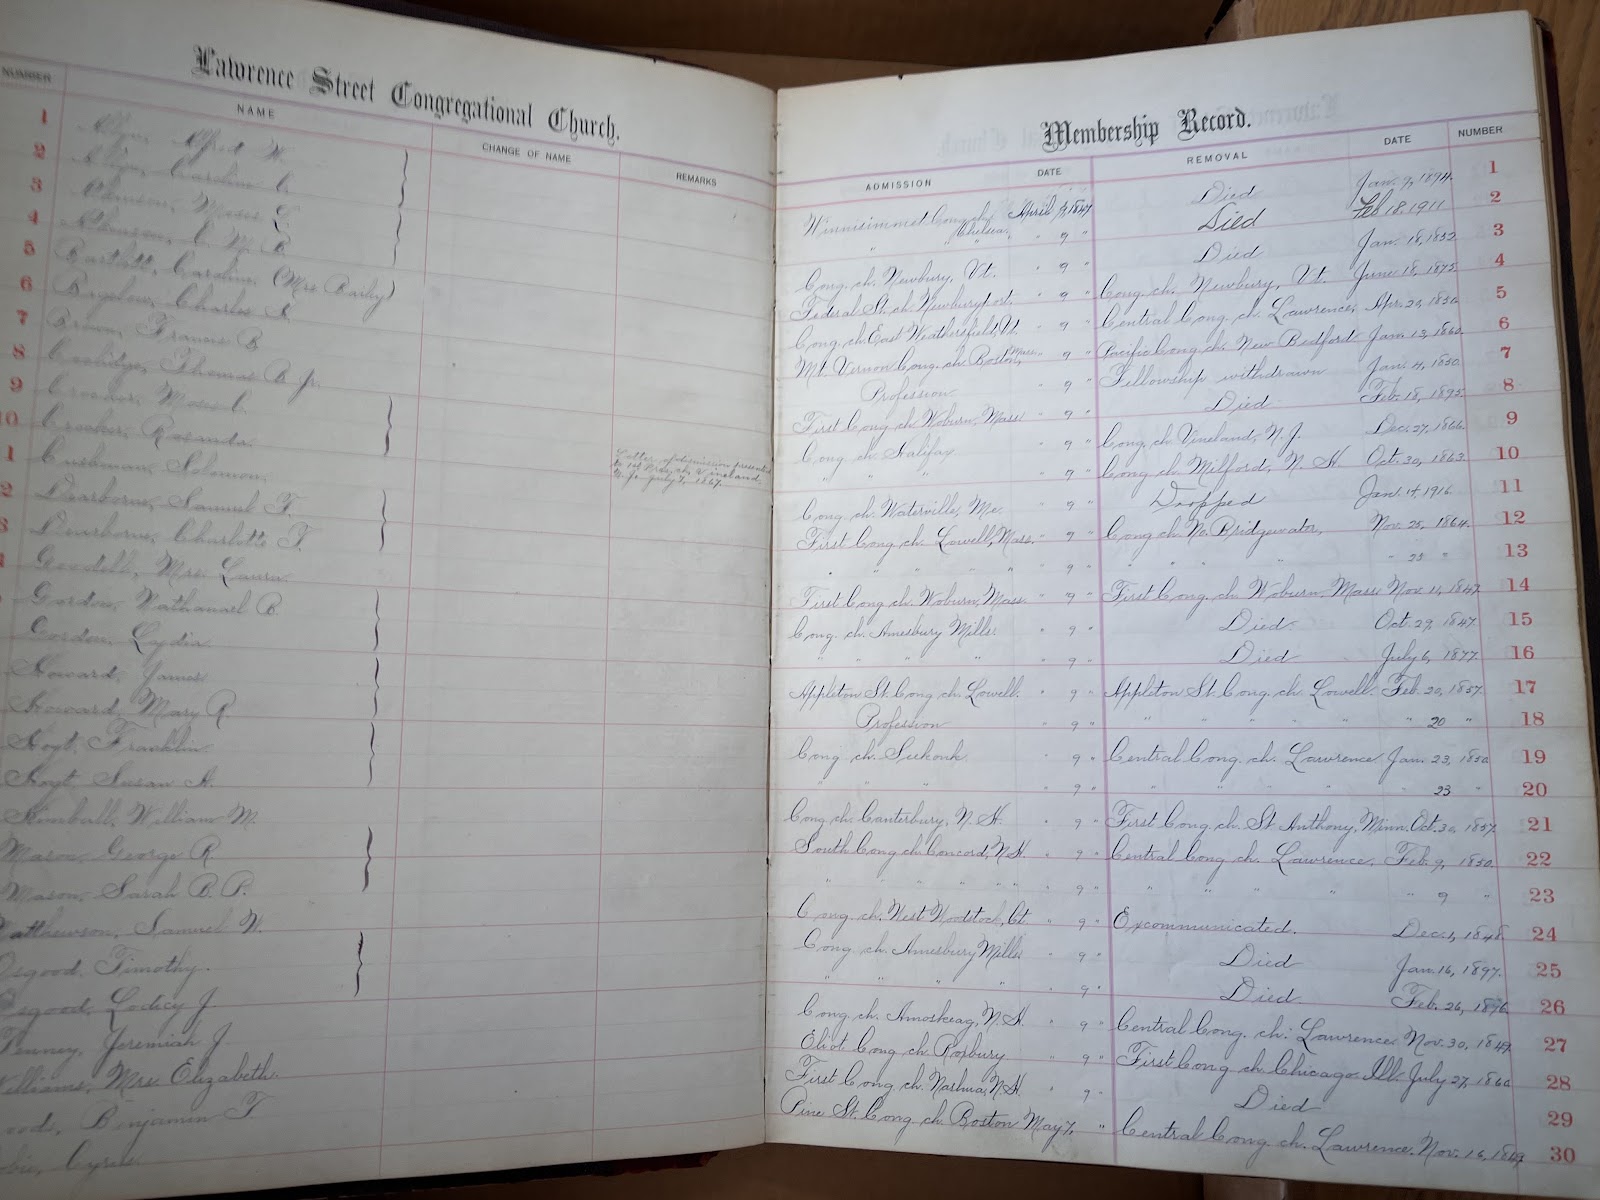 Lawrence Street Congregational Church.
NUMBER NAME CHANGE OF NAME REMARKS
1 Alfred W.
2 Caroline C.
3 Atkinson, Moses L.
4 Atkinson, C. M. B
5 Bartlett, Caroline, (Mrs Barley)
6 Bigelow, Charles
7 Brown, Francis B
8 Coolidge, Thomas B. jr.
9 Crocker, Moses C.
10 Crocker, Rosanda.
1 Cushman, Solomon.
2 Dearborne, Samuel F.
3 Dearborne, Charlotte F.
Goodell, Mrs. Laura
Gordon, Nathanael B.
Gordon, Lydia
Howard, James
Howard, Mary R.
Hoyt, Franklin
Hoyt, Susan A.
Kimball, William M.
Mason, George R.
Mason, Sarah B. P.
Matthewson, Samuel W.
Osgood, Timothy.
Osgood, Lodicy J.
Tenney, Jeremiah J.
Williams, Mrs Elizabeth
Benjamin F
Cyrus
Letter of dismission presented
to 1st ch. Vineland,
N. J. July 7, 1867.
Membership Record.
ADMISSION DATE REMOVAL DATE NUMBER
Winnisimmet Cong. ch. Chelsea. April 9, 1847. Died Jan. 9, 1894. 1
" " " 9 " Died Feb 18, 1911 2
Cong. ch. Newbury, Vt. " 9 " Died Jan. 18, 1852. 3
Federal St. ch. Newburyport. " 9 " Cong. ch. Newbury, Vt. June 18, 1875. 4
Cong. ch. East Weathersfield, Vt. " 9 " Central Cong. ch. Lawrence, Apr. 20, 1850. 5
Mt. Vernon Cong. ch. Boston, Mass. " 9 " Pacific Cong. ch. New Bedford Jan. 13, 1860. 6
Profession " 9 " Fellowship withdrawn Jan. 4, 1850. 7
First Cong. ch. Woburn, Mass. " 9 " Died. Feb. 18, 1895. 8
Cong. ch. Halifax " 9 " Cong. ch. Vineland, N. J. Dec. 27, 1866. 9
" " " 9 " Cong. ch. Milford, N. H. Oct. 30, 1863. 10
Cong. ch. Waterville, Me. " 9 " Dropped Jan. 14, 1916. 11
First Cong. ch. Lowell, Mass. " 9 " Cong. ch. No. Bridgewater, Nov. 25, 1864. 12
" " " " " " 9 " " " " " " 25 " 13
First Cong. ch. Woburn, Mass. " 9 " First Cong. ch. Woburn, Mass Nov. 11, 1847. 14
Cong. ch. Amesbury Mills. " 9 " Died. Oct. 29, 1847. 15
" " " " " 9 " Died July 6, 1877. 16
Appleton St. Cong. ch. Lowell. " 9 " Appleton St. Cong. ch. Lowell. Feb. 20, 1857. 17
Profession " 9 " " " " " " " 20 " 18
Cong. ch. Seekonk " 9 " Central Cong. ch. Lawrence Jan. 23, 1850 19
" " " " 9 " " " " " " 23 " 20
Cong. ch. Canterbury, N. H. " 9 " First Cong. ch. St Anthony, Minn. Oct. 30, 1857. 21
South Cong. ch. Concord, N. H. " 9 " Central Cong. ch. Lawrence. Feb. 9, 1850. 22
" " " " " " " 9 " " " " " " 9 " 23
Cong. ch. West Woodstock, Ct. " 9 " Excommunicated. Dec. 1, 1848. 24
Cong. ch. Amesbury Mills " 9 " Died Jan. 16, 1897. 25
" " " " " 9 " Died. Feb. 26, 1896. 26
Cong. ch. Amoskeag, N. H. " 9 " Central Cong. ch. Lawrence. Nov. 30, 1849. 27
Eliot Cong. ch. Roxbury " 9 " First Cong. ch. Chicago. Ill. July 27, 1860 28
First Cong. ch. Nashua, N. H. " 9 " Died 29
Pine St. Cong. ch. Boston May 7, " Central Cong. ch. Lawrence. Nov. 16, 1849. 30